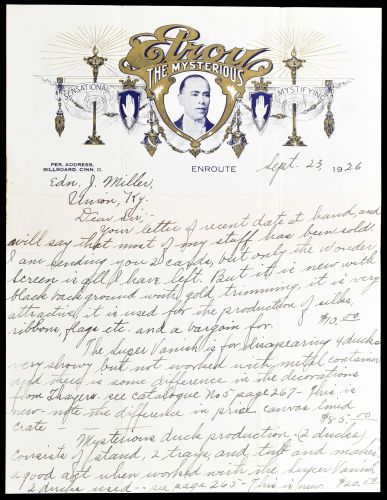 Prou
THE MYSTERIOUS
SENSATIONAL
MYSTIFYING
PER. ADDRESS,
BILLBOARD, CINN, O.
ENROUTE
Sept. 23, 1926
Edn. J. Miller,
Union, Ky.
Dear Sir;-
Your letter of recent date at hand and
will say that most of my stuff has been sold.
I am sending you 2 cards, but only the Wonder
Screen is all I have left. But it is new with
black background with gold trimming, it is very
attractive it is used for the production of silks,
ribbons, flags etc. and a bargain for. $10.00
The Super Vanish is for disappearing 4 ducks
very showy but not worked with metal container
and there is some difference in the decorations
from Thayers. see catalogue No 5 page 267 - This is
new - note the difference in price canvas lined
crate - $85.00
Mysterious duck production (2 ducks)
consists of stand, 2 trays, and tub and makes
a good act when worked with the Super Vanish
2 ducks used -- see page 265 - This is new. $20.00